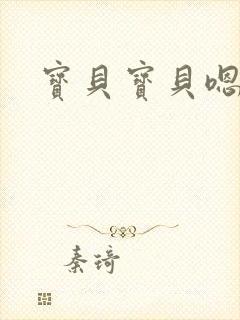 寶貝寶貝嗯
秦琦